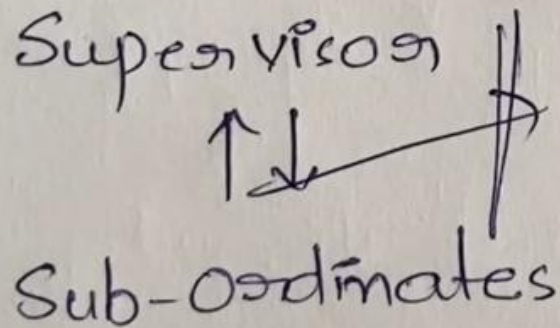 Supervisor
↑↓
Sub-Ordinates